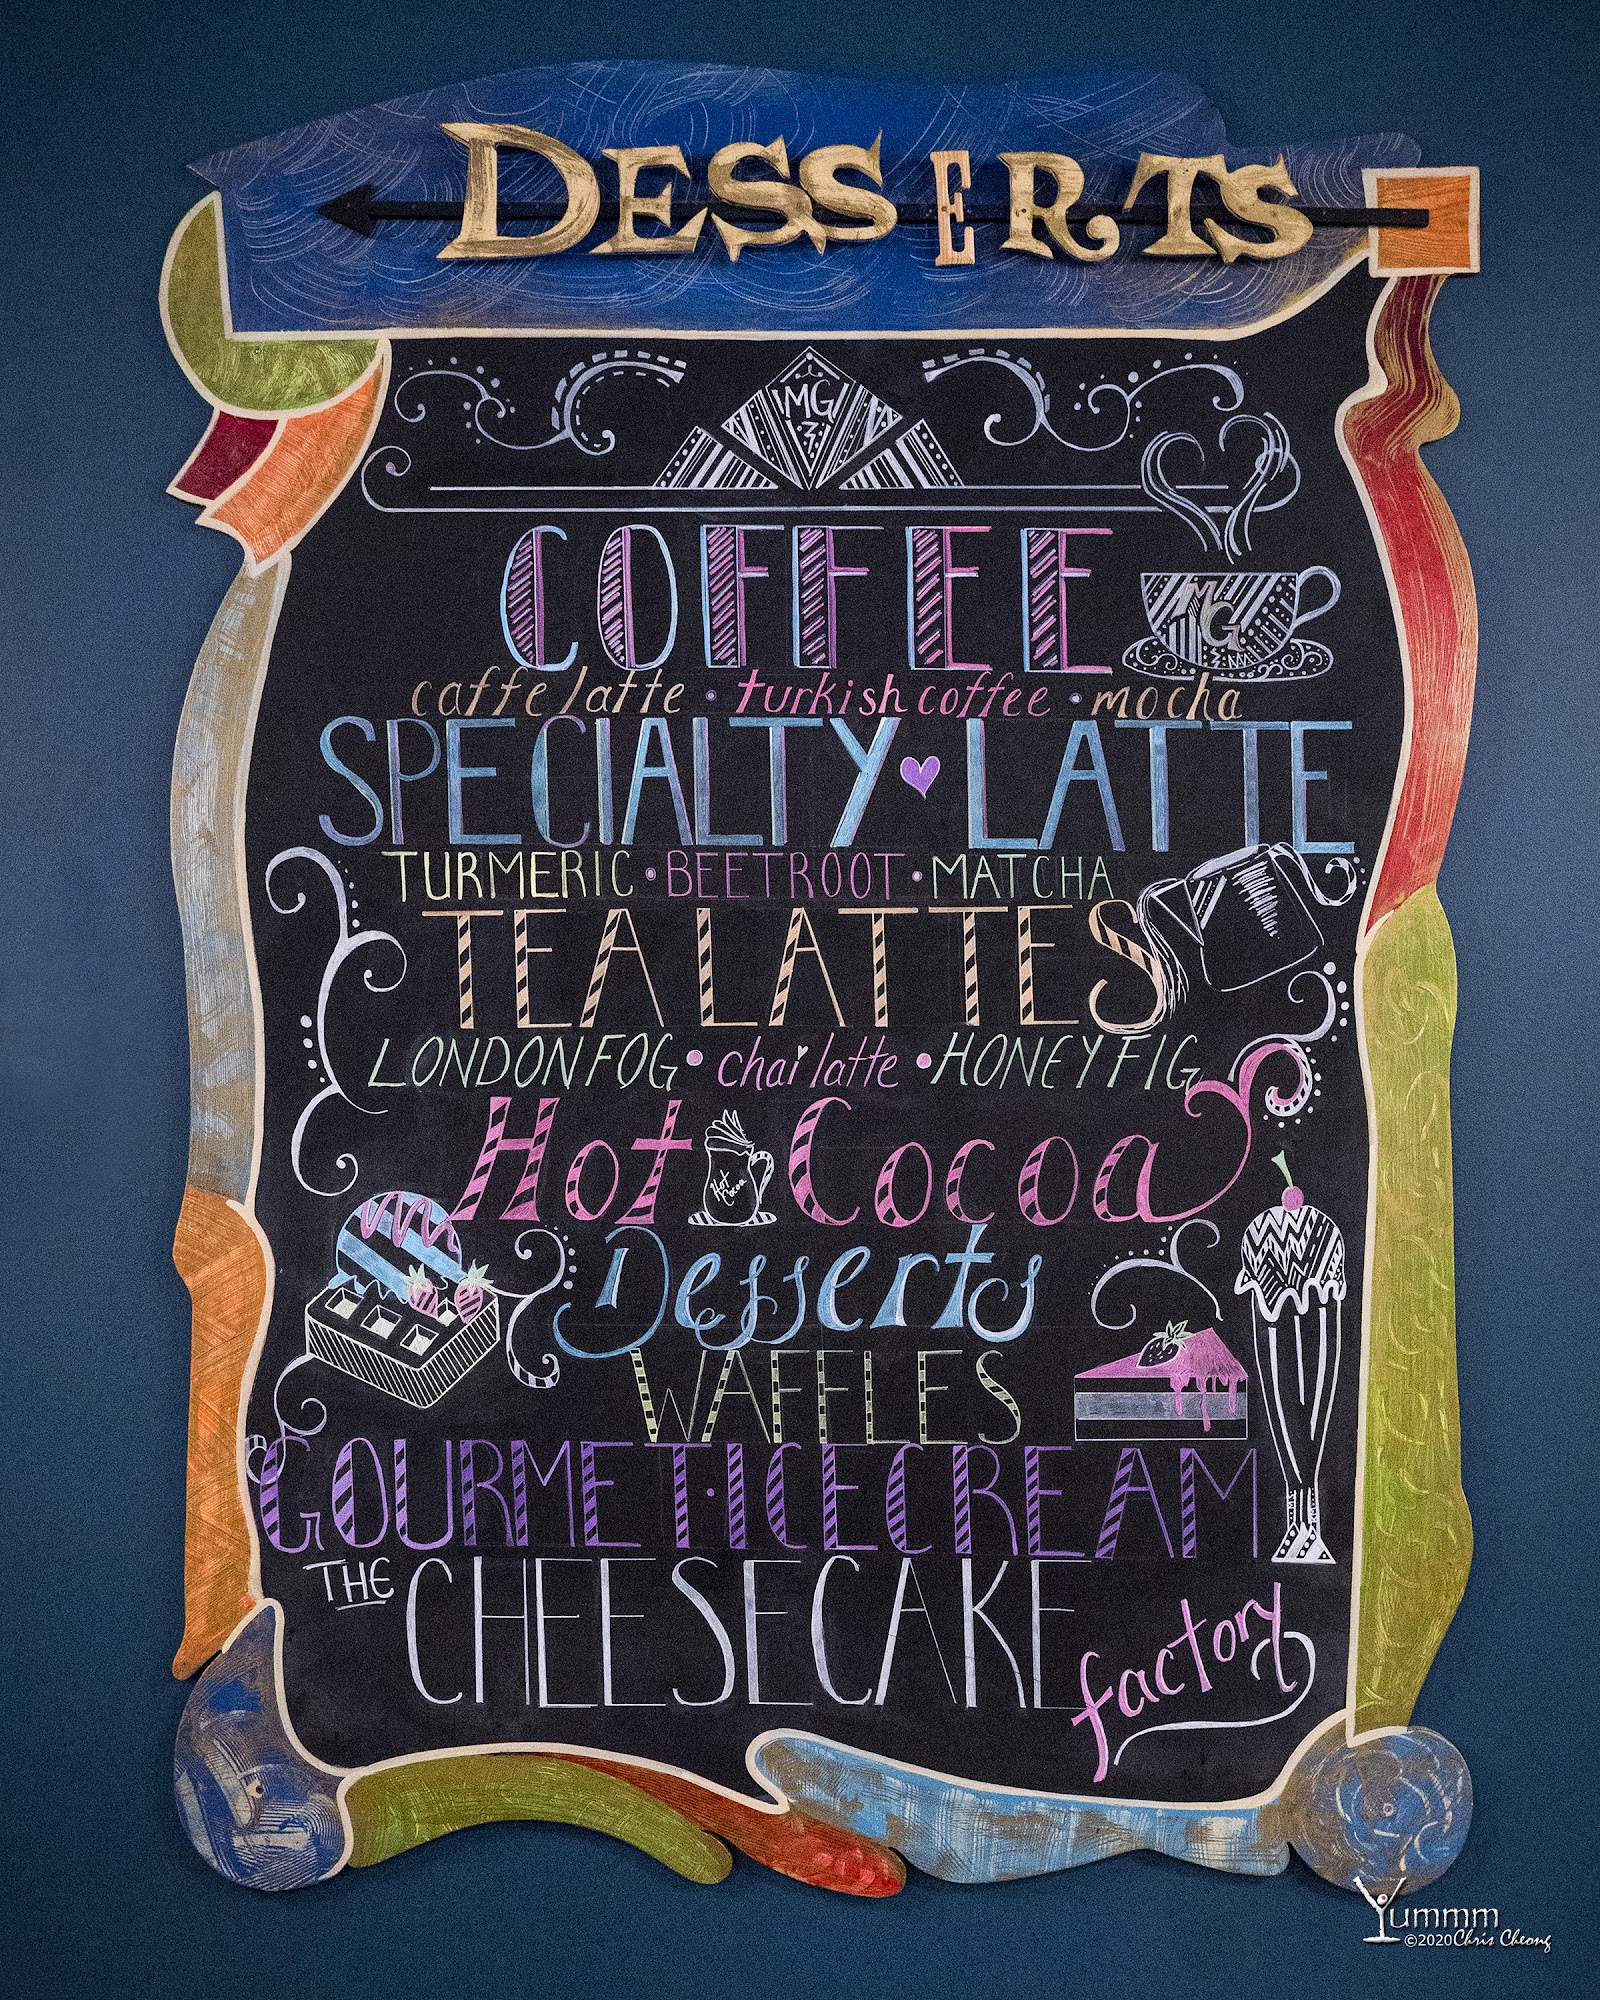 DESSERTS
MG
COFFEE
MG
caffe latte • turkish coffee • mocha
SPECIALTY LATTE
TURMERIC • BEETROOT • MATCHA
TEA LATTES
LONDON FOG • chai latte • HONEY FIG
Hot Cocoa
Hot Cocoa
Desserts
WAFFLES
GOURMET • ICE CREAM
THE CHEESECAKE factory
Yummm
©2020 Chris Cheong